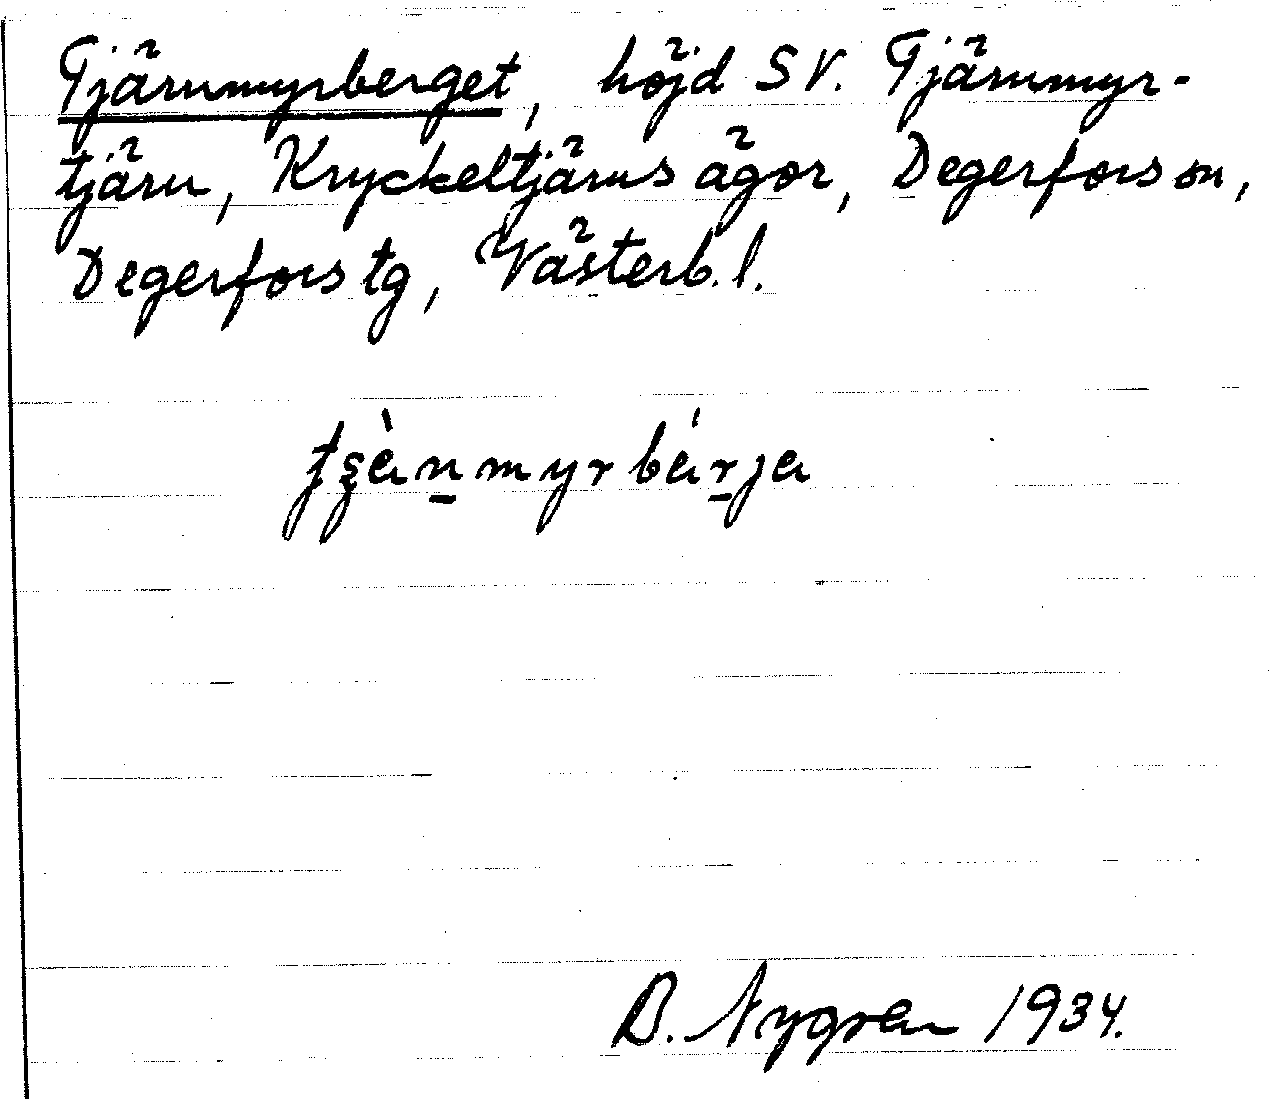 Tjärnmyrberget, höjd SV. Tjärnmyr-
tjärn, Kryckeltjärns ägor, Degerfors sn,
Degerfors tg, Västerb. l.
B. Nygren 1934.